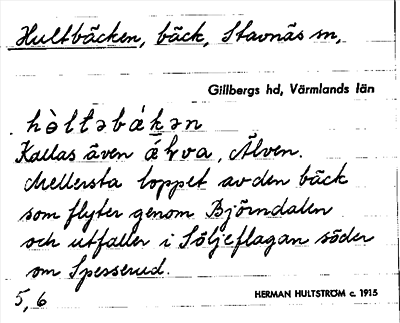 Hultbäcken, bäck, Stavnäs sn,
Gillbergs hd, Värmlands län
Kallas även, Älven.
Mellersta loppet av den bäck
som flyter genom Björndalen
och utfaller i Söljeflagan söder
om Spesserud.
5, 6
HERMAN HULTSTRÖM c. 1915